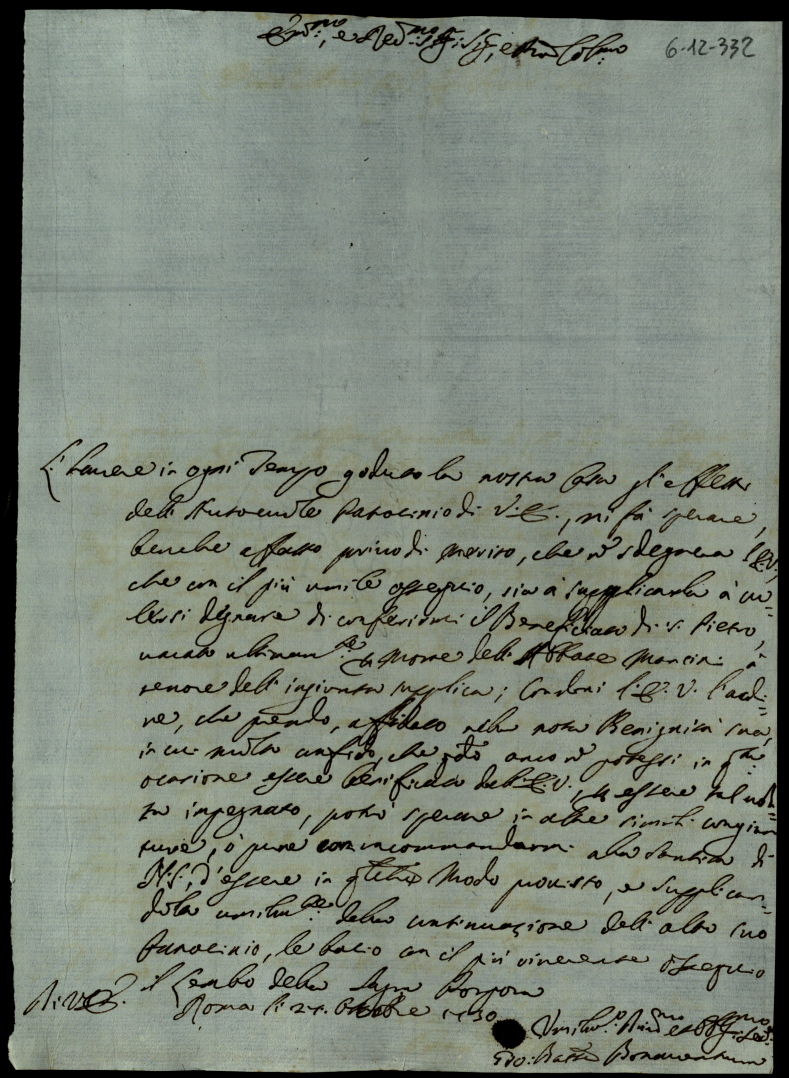 Em.mo, e Red.mo Sig. Sig., e Pron Col.mo
6-12-332
L'havere in ogni Tempo goduto la nostra Casa gl'effetti
dell'Autorevole Patrocinio di V.E., mi fà sperare,
benche affatto privo di merito, che n. sdegnerà l'E.V.,
che con il più umile ossequio, sia à supplicarla à vo=
lersi degnare di conferirmi il Beneficiato di S. Pietro,
vacato ultimam.te p. Morte dell'Abbate Mancini à
tenore dell'ingiunta supplica; Condoni l'E.V. l'ardi=
re, che prendo, affidato nella nota Benignità sua,
in cui molto confido, che q.do anco n. potessi in q.ta
ocasione essere beneficato dall'E.V., p. essere tal volta
impegnato, potrò sperare in altre simili congiun
ture, ò pure con incommandarmi alla Santità di
N.S., d'essere in q.lche Modo provisto, e supplican=
dola umilm.te della continuazione dell'alto suo
Patrocinio, le bacio con il più riverente ossequio
il Lembo della Sagra Porpora
Di V.E.
Roma li 21. Ottobre 1730
Umilis.o Div.mo et Obl.mo Ser.
Gio: Batta Bonaventura